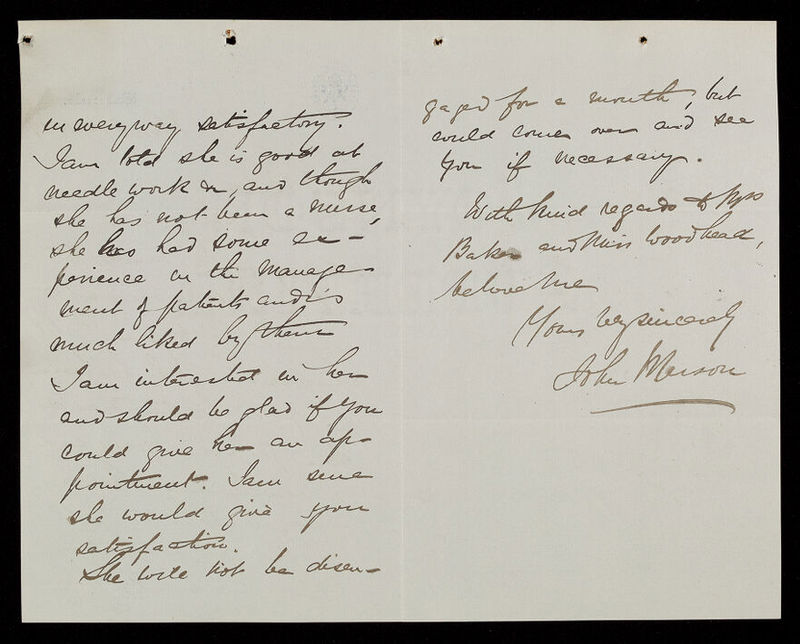 in every way satisfactory.
I am told she is good at
needle work &c, and though
she has not been a nurse,
she has had some ex-
perience in the manage-
ment of patients and is
much liked by them
I am interested in her
and should be glad if you
could give her an ap-
pointment. I am sure
she would give you
satisfaction.
She will not be disen-
gaged for a month, but
could come over and see
you if necessary.
With kind regards to Mrs
Baker and Miss Woodhead,
believe me
Yours very sincerely
John